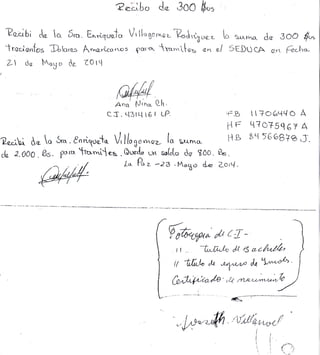 Recibo de 300 $us
Recibi de la Sra. Enriqueta Villagomez Rodriguez la suma de 300 $us
trecientos Dolares Americanos para tramites en el SEDUCA en fecha.
21 de Mayo de 2014
Ana Nina Ch.
C.I. 4314161 LP.
FB 11706440 A
HF 47075967 A
HB 84566878 J.
Recibi de la Sra. Enriqueta Villagomez la suma
de 2.000. Bs. para Tramites. Queda un saldo de 800. Bs.
La Paz - 23 - Mayo de 2014.
Fotocopia de C.I -
11 - titulo de Bachiller
11 titulo de egreso de
Certificado de nacimiento